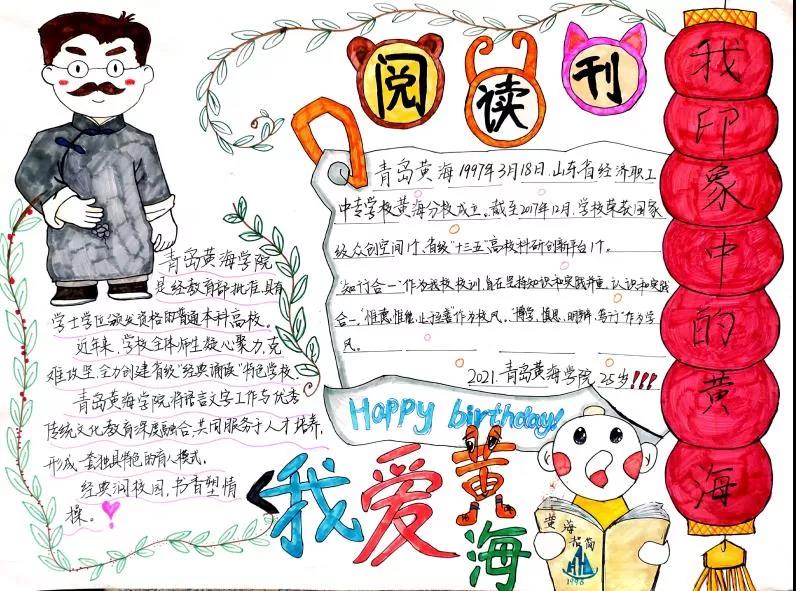 阅读刊
我印象中的黄海
青岛黄海1997年3月18日,山东省经济职工
中专学校黄海分校成立。截至2017年12月,学校荣获国家
级众创空间1个,省级"十三五"高校科研创新平台1个。
"知行合一"作为我校校训,旨在坚持知识和实践并重,认识和实践
合一,"惟德惟能,止于至善"作为校风。"博学,慎思,明辨,笃行"作为学
风。
2021.青岛黄海学院 25岁!!!
Happy birthday!
青岛黄海学院
是经教育部批准,具有
学士学位授予资格的普通本科高校。
近年来,学校全体师生凝心聚力,克
难攻坚,全力创建省级"经典诵读"特色学校
青岛黄海学院将语言文字工作与优秀
传统文化教育深度融合,共同服务于人才培养,
形成一套独具特色的育人模式。
经典润校园,书香塑情
操。
我爱黄海
黄海
简
1996